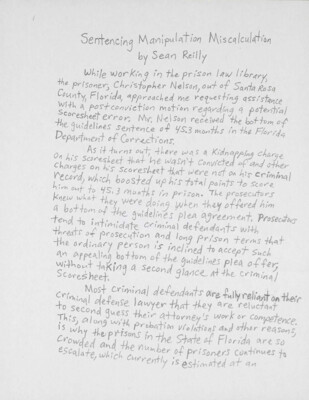 Sentencing Manipulation Miscalculation
by Sean Reilly
While working in the prison law library,
the prisoner, Christopher Nelson, out of Santa Rosa
County, Florida approached me requesting assistance
with a postconviction motion regarding a potential
Scoresheet error. Mr. Nelson received the bottom of
the guidelines sentence of 45.3 months in the Florida
Department of Corrections.
As it turns out, there was a Kidnapping charge
on his scoresheet that he wasn't convicted of and other
charges on his scoresheet that were not on his criminal
record, which boosted up his total points to score
him out to 45.3 months in prison. The prosecutors
knew what they were doing when they offered him
a bottom of the guidelines plea agreement. Prosecutors
tend to intimidate criminal defendants with
threats of prosecution and long prison terms that
the ordinary person is inclined to accept such
an appealing bottom of the guidelines plea offer,
without taking a second glance at the criminal
Scoresheet.
Most criminal defendants are fully reliant on their
criminal defense lawyer that they are reluctant
to second guess their attorney's work or competence.
This, along with probation violations and other reasons
is why the prisons in the State of Florida are so
crowded and the number of prisoners continues to
escalate, which currently is estimated at an